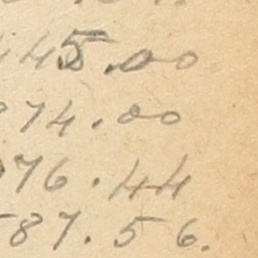 445.00
874.00
76.44
587.56.